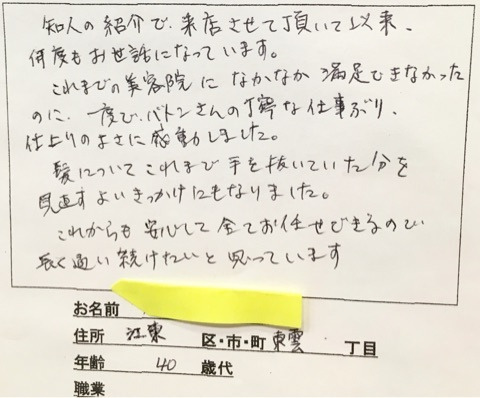 知人の紹介で、来店させて頂いて以来、
何度もお世話になっています。
これまでの美容院に なかなか 満足できなかった
のに、一度で、バトンさんの丁寧な仕事ぶり、
仕上りのよさに感動しました。
髪について これまで 手を抜いていた自分を
見直すよいきっかけにもなりました。
これからも 安心して 全てお任せできるので
長く通い続けたいと思っています
お名前
住所 江東 区・市・町 東雲 丁目
年齢 40 歳代
職業